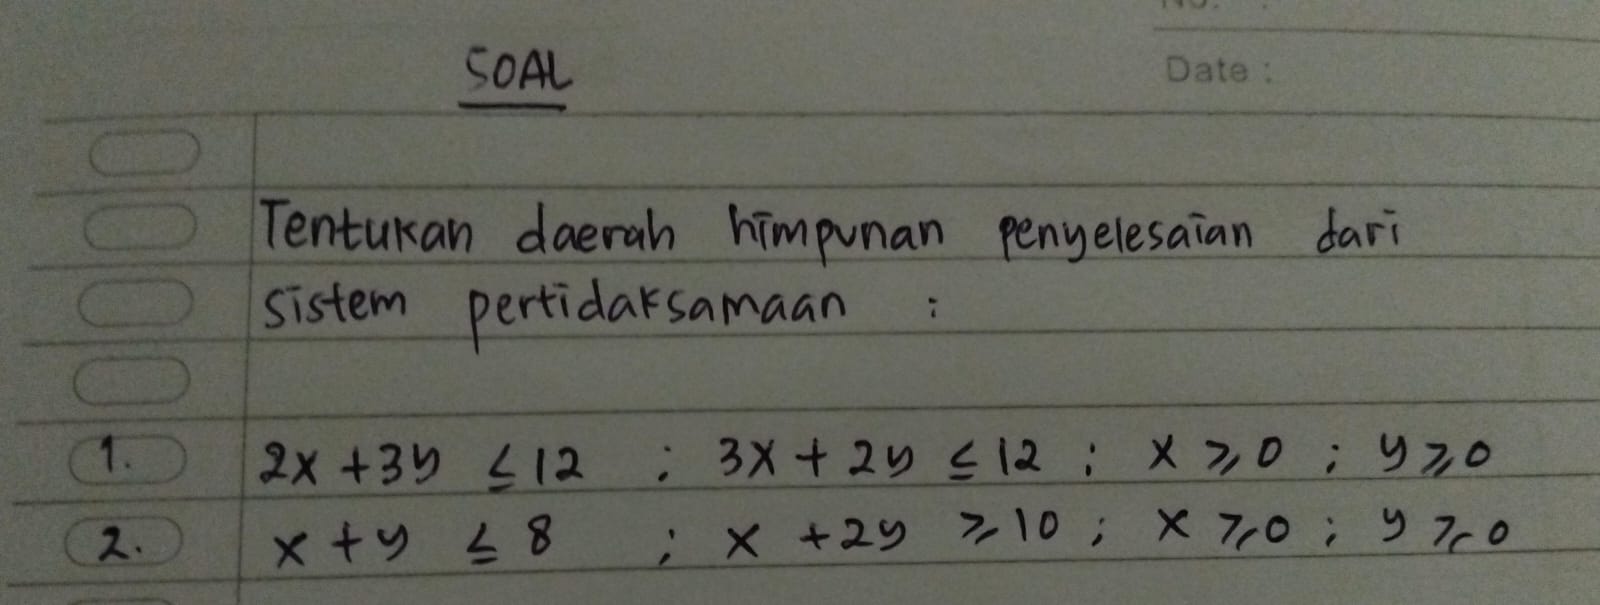 Date :
SOAL
Tentukan daerah himpunan penyelesaian dari
sistem pertidaksamaan :
1. 2x + 3y ≤ 12 ; 3x + 2y ≤ 12 ; x ≥ 0 ; y ≥ 0
2. x + y ≤ 8 ; x + 2y ≥ 10 ; x ≥ 0 ; y ≥ 0